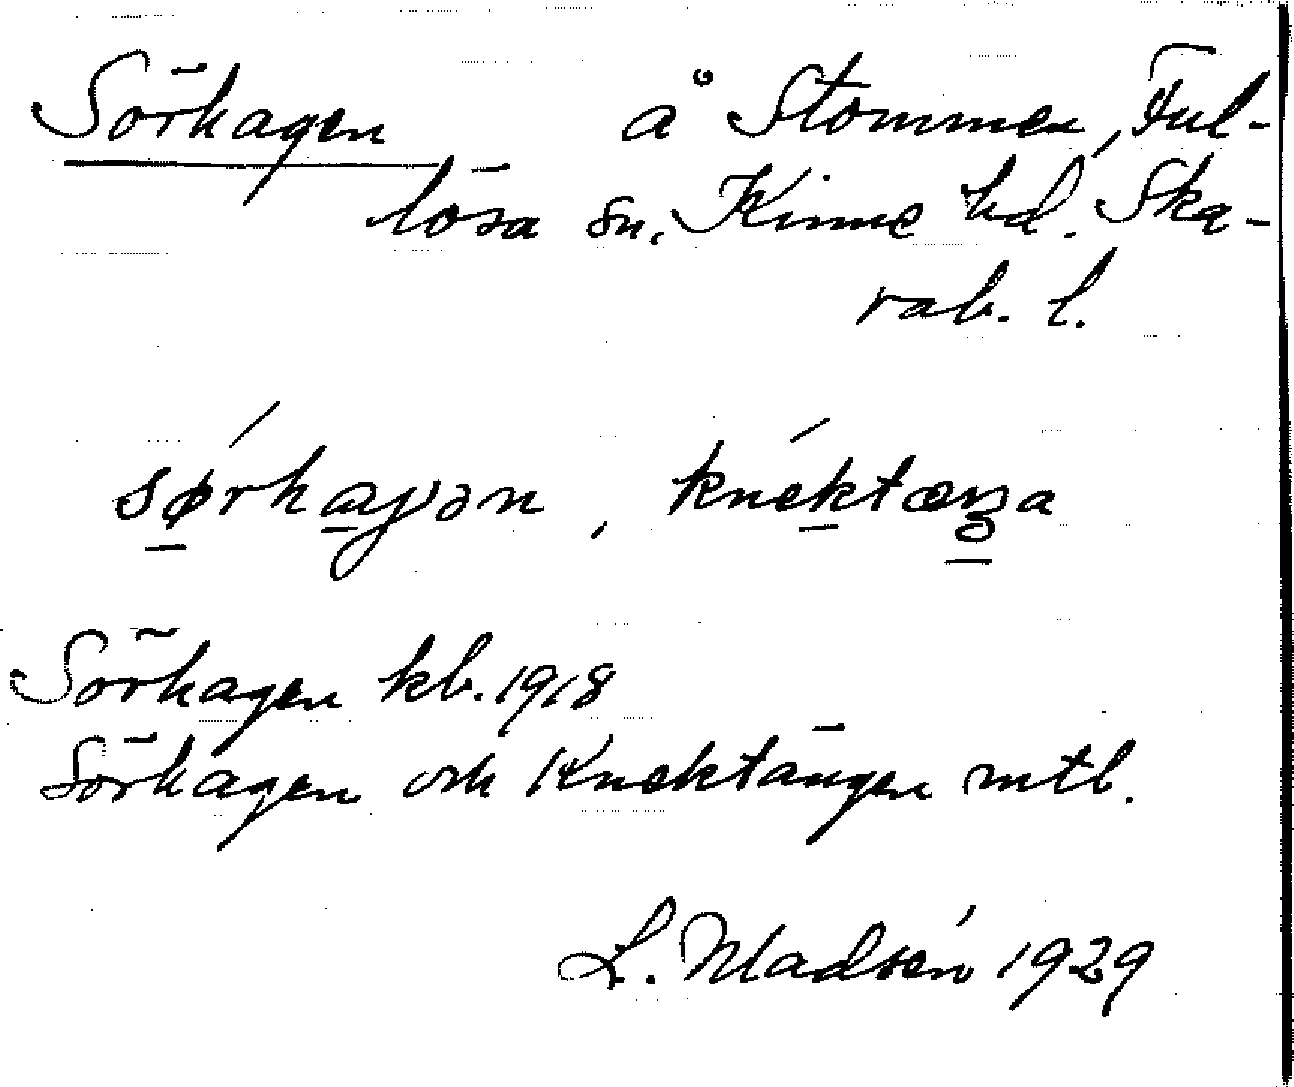 Sörhagen å Stommen, Ful-
lösa sn, Kinne hd. Ska-
rab. l.
sørhaɡən, knektæŋa
Sörhagen kb. 1918
Sörhagen och Knektängen mtl.
L. Madsén 1929